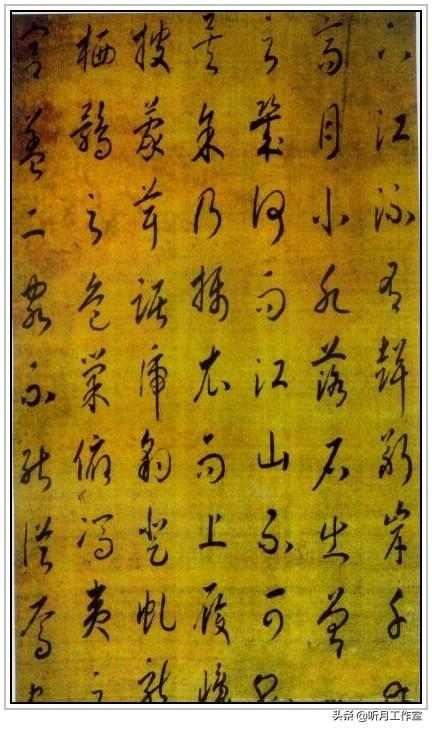 下江流有聲斷岸千
高月小水落石出曾
之幾何而江山不可復
矣余乃攝衣而上履巉
披蒙茸踞虎豹登虬龍
栖鶻之危巢俯馮夷之
宮蓋二客不能從焉
头条 @听月工作室